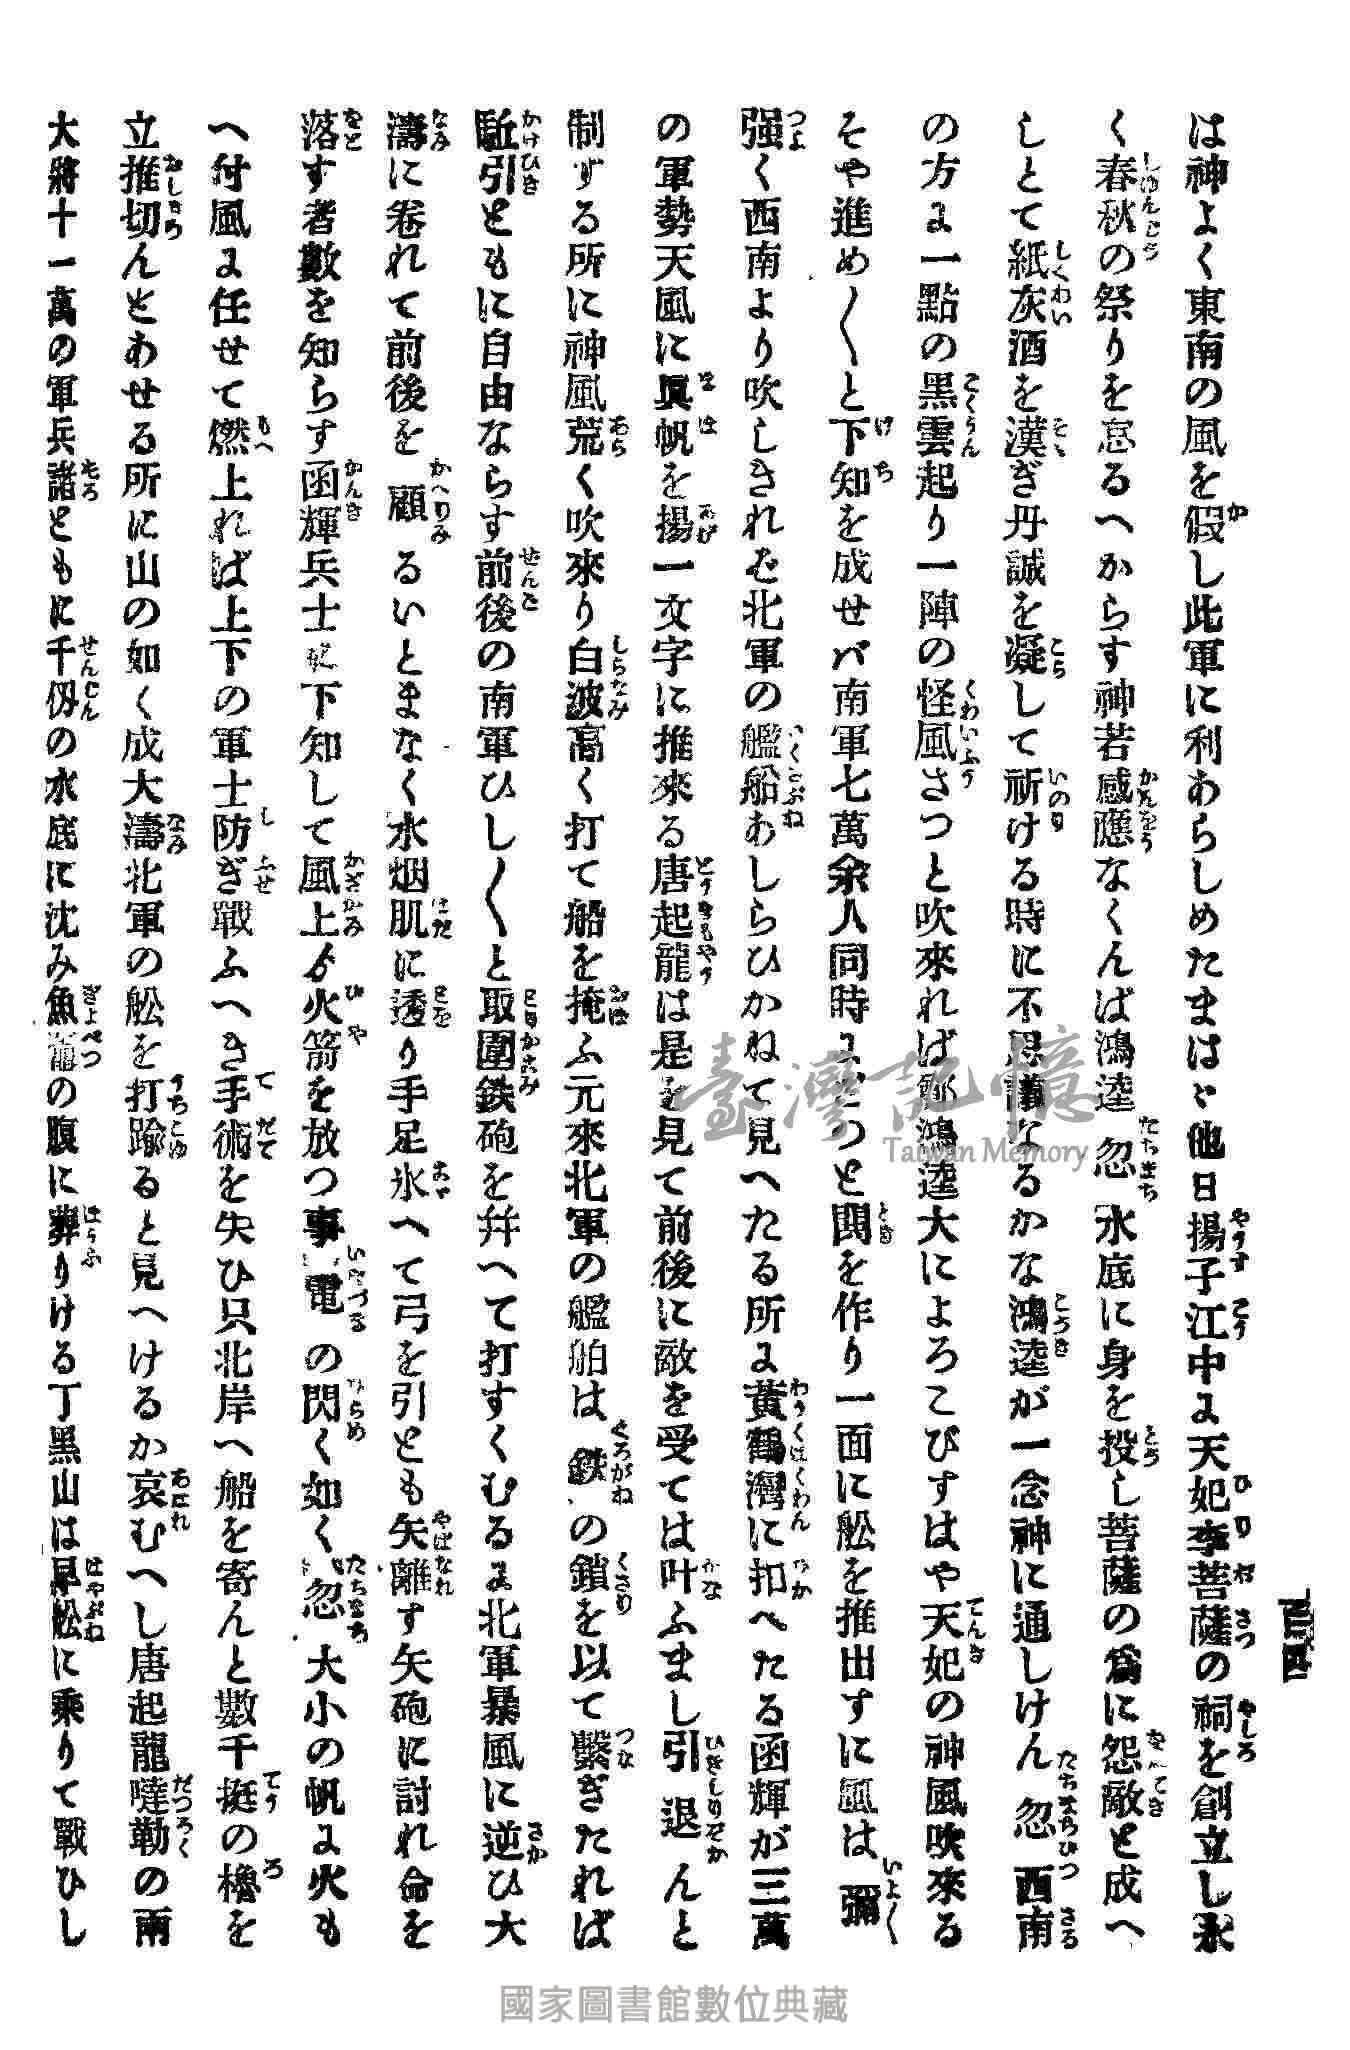 は神よく東南の風を假し此軍に利あらしめたまはゞ他日揚子江中に天妃李菩薩の祠を創立し永
く春秋の祭りを怠るへからす神若感應なくんば鴻逵忽水底に身を投し菩薩の爲に怨敵と成へ
しとて紙灰酒を漢ぎ丹誠を凝して祈ける時に不思議なるかな鴻逵が一念神に通しけん忽西南
の方に一點の黑雲起り一陣の怪風さつと吹來れば鄭鴻逵大によろこびすはや天妃の神風吹來る
そや進め〱と下知を成せバ南軍七萬余人同時にどつと鬨を作り一面に舩を推出すに風は彌〱
强く西南より吹しきれむ北軍の艦船あしらひかねて見へたる所に黃鶴灣に扣へたる函輝が三萬
の軍勢天風に眞帆を揚一文字に推來る唐起龍は是を見て前後に敵を受ては叶ふまし引退んと
制する所に神風荒く吹來り白波高く打て船を掩ふ元來北軍の艦舶は鉄の鎖を以て繫ぎたれば
駈引ともに自由ならす前後の南軍ひし〱と取圍鉄砲を幷へて打すくむるに北軍暴風に逆ひ大
濤に卷れて前後を顧るいとまなく水烟肌に透り手足氷へて弓を引とも矢離す矢砲に討れ命を
落す者數を知らす函輝兵士に下知して風上ゟ火箭を放つ事電の閃く如く忽大小の帆に火も
へ付風に任せて燃上れば上下の軍士防ぎ戰ふへき手術を失ひ只北岸へ船を寄んと數千挺の櫓を
立推切んとあせる所に山の如く成大濤北軍の舩を打踰ると見へけるか哀むへし唐起龍噠勒の兩
大將十一萬の軍兵諸ともに千仭の水底に沈み魚鼈の腹に葬りける丁黑山は早舩に乘りて戰ひし